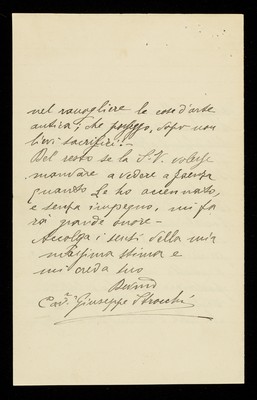 nel raccogliere le cose d'arte
antica, che posseggo, dopo non
lievi sacrifici!—
Del resto se la S.V. volesse
mandare a vedere a Faenza
quanto Le ho accennato,
e senza impegno, mi fa
rà grande onore—
Accolga i sensi della mia
massima stima e
mi creda suo
Devmo
Cav. Giuseppe Strocchi